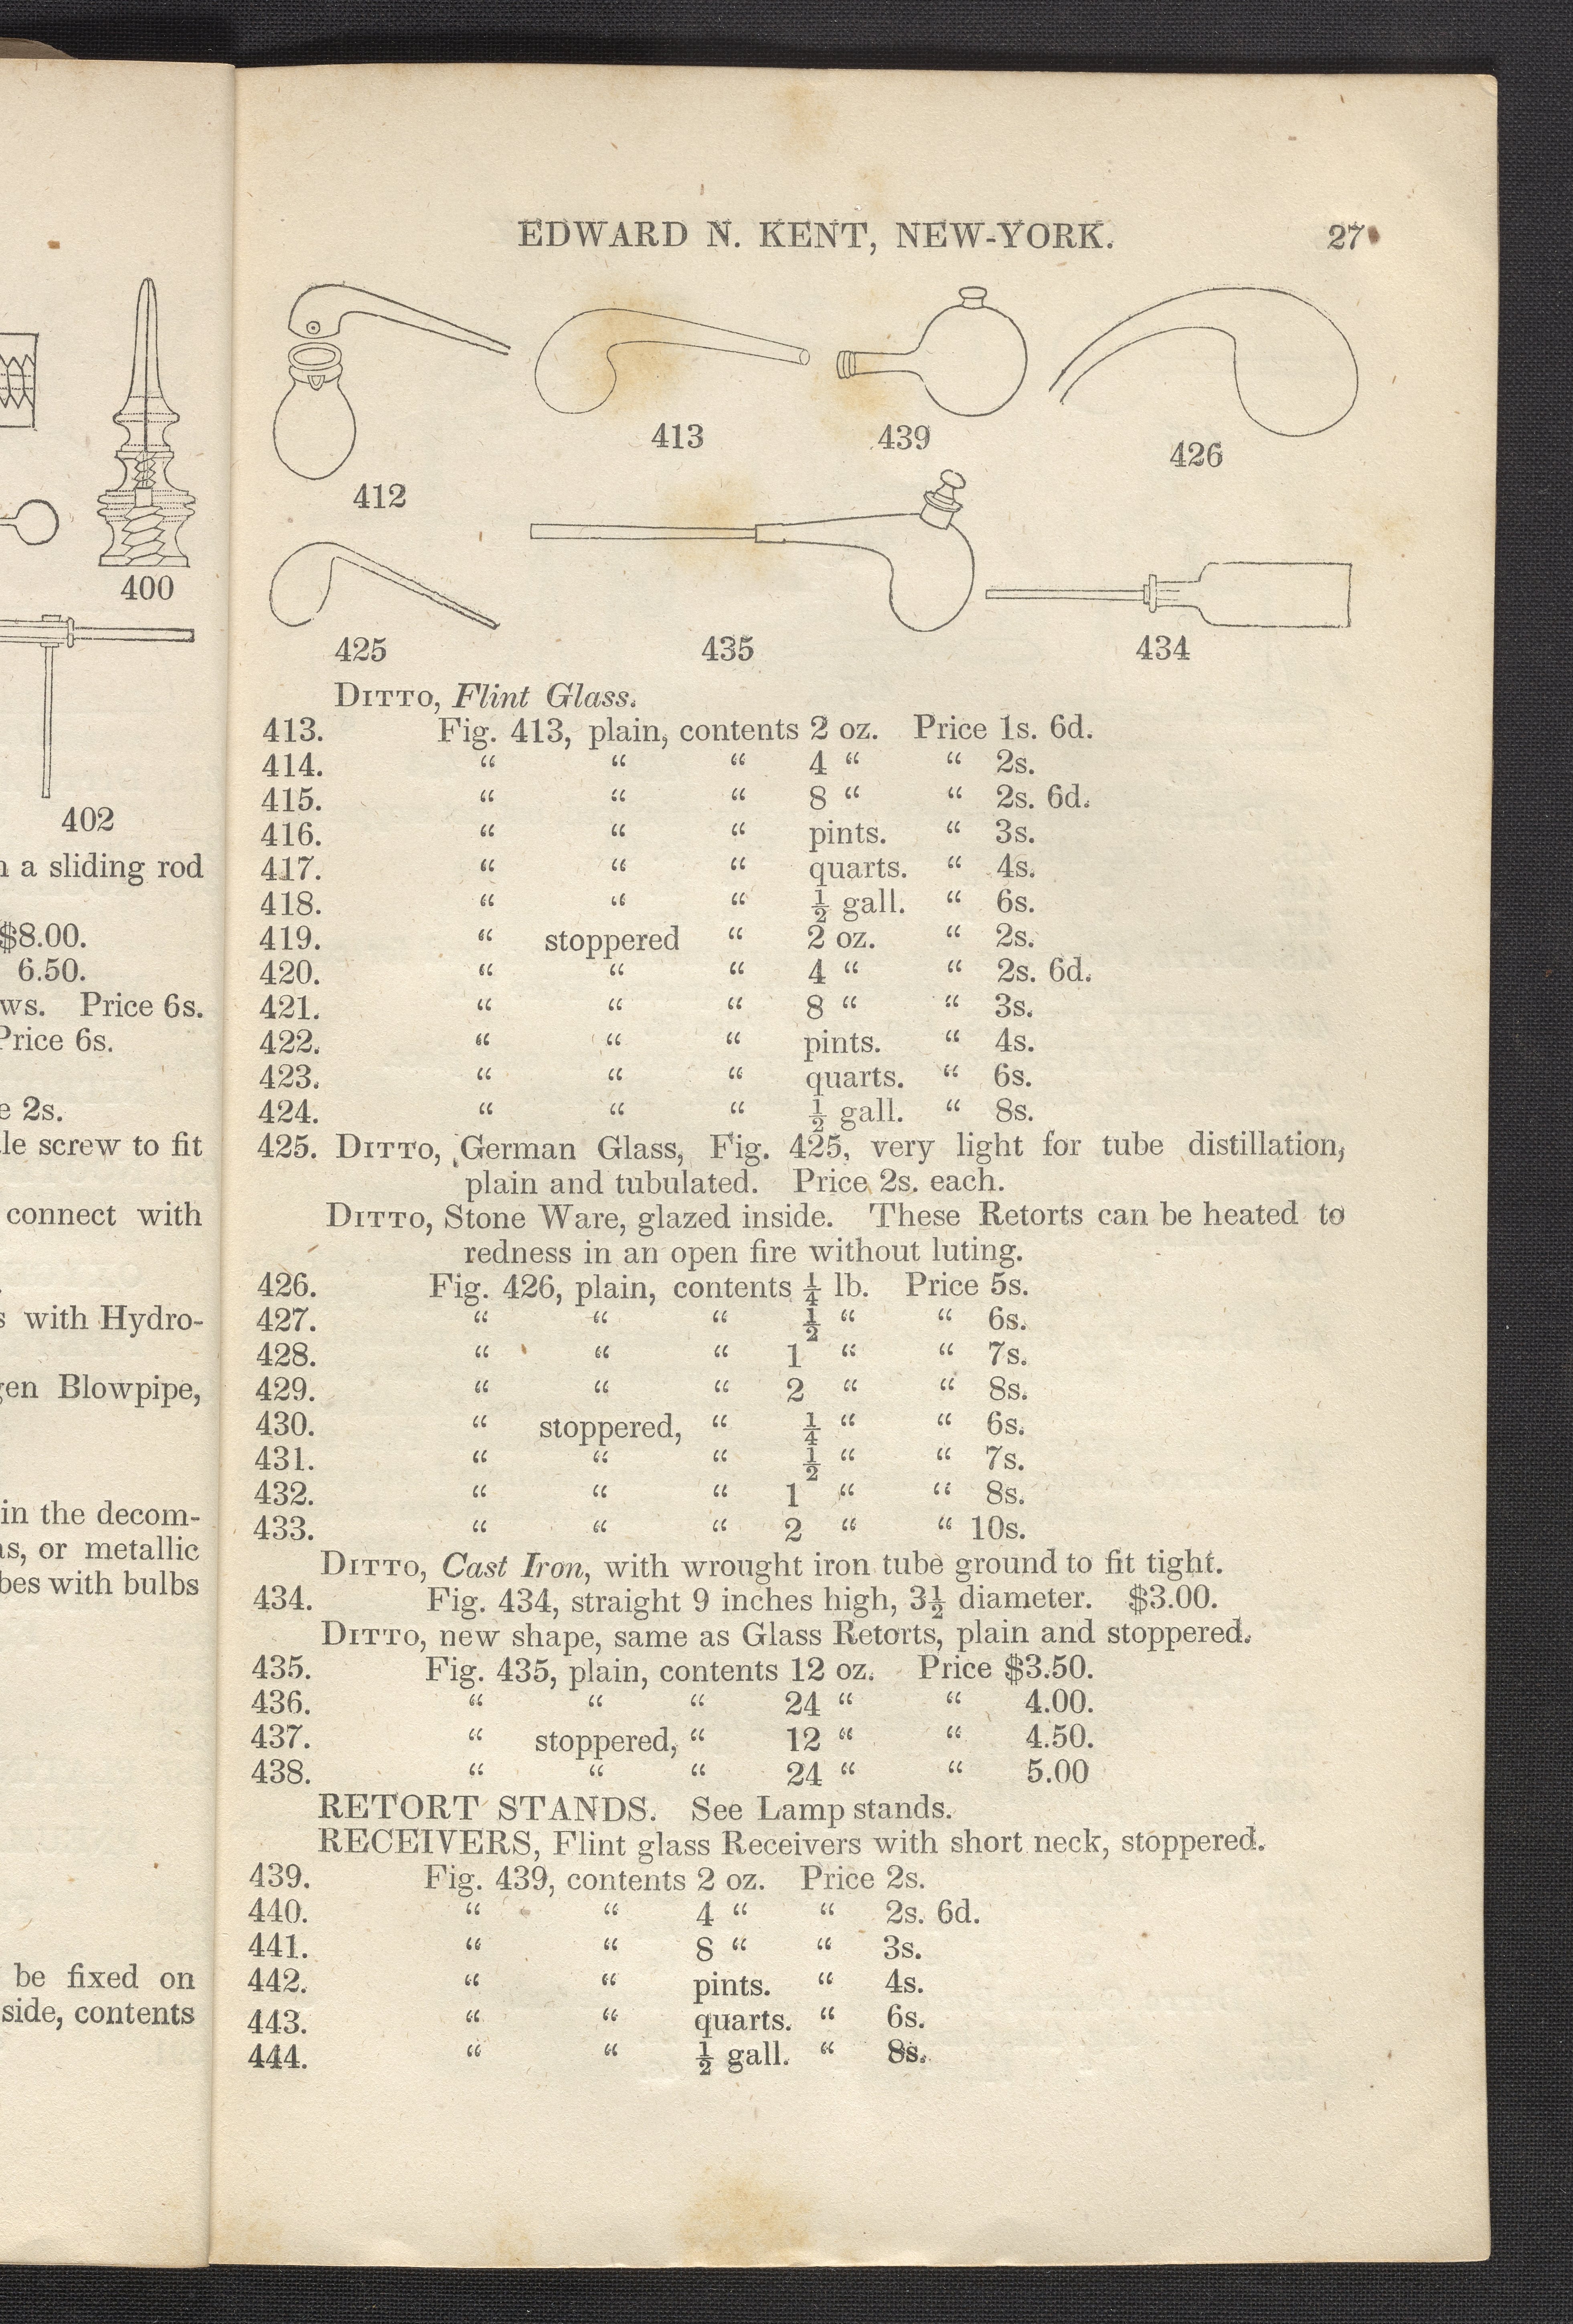 400
402
a sliding rod
$8.00.
6.50.
ws. Price 6s.
Price 6s.
2s.
le screw to fit
connect with
with Hydro-
gen Blowpipe,
in the decom-
as, or metallic
bes with bulbs
be fixed on
side, contents
EDWARD N. KENT, NEW-YORK. 27
412
413
439
426
425
435
434
DITTO, Flint Glass.
413. Fig. 413, plain, contents 2 oz. Price 1s. 6d.
414. “ “ “ 4 “ “ 2s.
415. “ “ “ 8 “ “ 2s. 6d.
416. “ “ “ pints. “ 3s.
417. “ “ “ quarts. “ 4s.
418. “ “ “ ½ gall. “ 6s.
419. “ stoppered “ 2 oz. “ 2s.
420. “ “ “ 4 “ “ 2s. 6d.
421. “ “ “ 8 “ “ 3s.
422. “ “ “ pints. “ 4s.
423. “ “ “ quarts. “ 6s.
424. “ “ “ ½ gall. “ 8s.
425. DITTO, German Glass, Fig. 425, very light for tube distillation,
plain and tubulated. Price 2s. each.
DITTO, Stone Ware, glazed inside. These Retorts can be heated to
redness in an open fire without luting.
426. Fig. 426, plain, contents ¼ lb. Price 5s.
427. “ “ “ ½ “ “ 6s.
428. “ “ “ 1 “ “ 7s.
429. “ “ “ 2 “ “ 8s.
430. “ stoppered, “ ¼ “ “ 6s.
431. “ “ “ ½ “ “ 7s.
432. “ “ “ 1 “ “ 8s.
433. “ “ “ 2 “ “ 10s.
DITTO, Cast Iron, with wrought iron tube ground to fit tight.
434. Fig. 434, straight 9 inches high, 3½ diameter. $3.00.
DITTO, new shape, same as Glass Retorts, plain and stoppered.
435. Fig. 435, plain, contents 12 oz. Price $3.50.
436. “ “ “ 24 “ “ 4.00.
437. “ stoppered, “ 12 “ “ 4.50.
438. “ “ “ 24 “ “ 5.00
RETORT STANDS. See Lamp stands.
RECEIVERS, Flint glass Receivers with short neck, stoppered.
439. Fig. 439, contents 2 oz. Price 2s.
440. “ “ 4 “ “ 2s. 6d.
441. “ “ 8 “ “ 3s.
442. “ “ pints. “ 4s.
443. “ “ quarts. “ 6s.
444. “ “ ½ gall. “ 8s.